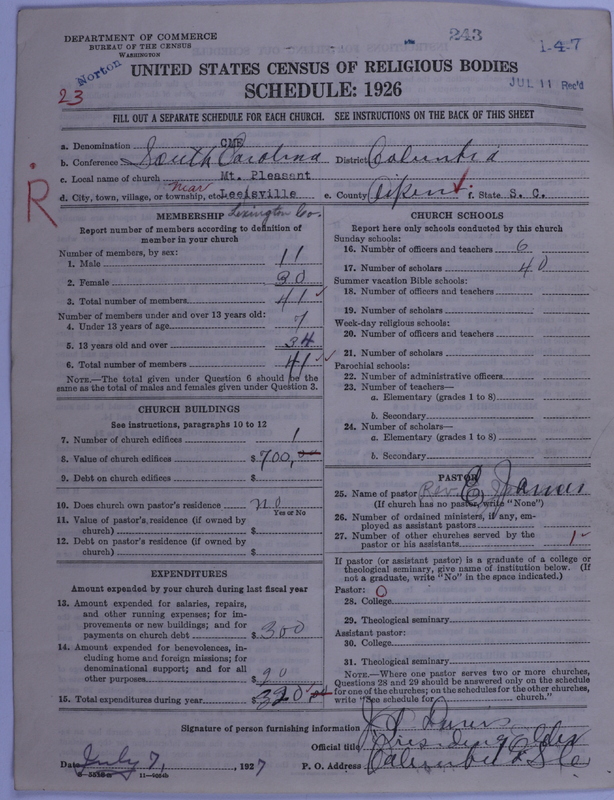 DEPARTMENT OF COMMERCE
BUREAU OF THE CENSUS
WASHINGTON
243
1-4-7
Norton
JUL 11 Rec'd
23
UNITED STATES CENSUS OF RELIGIOUS BODIES
SCHEDULE: 1926
FILL OUT A SEPARATE SCHEDULE FOR EACH CHURCH. SEE INSTRUCTIONS ON THE BACK OF THIS SHEET
a. Denomination CME
b. Conference South Carolina District Columbia
c. Local name of church Mt. Pleasant
d. City, town, village, or township, etc. near Leeisville e. County Aiken f. State S. C.
R
Lexington Co.
MEMBERSHIP
Report number of members according to definition of member in your church
Number of members, by sex:
1. Male 11
2. Female 30
3. Total number of members 41
Number of members under and over 13 years old:
4. Under 13 years of age 7
5. 13 years old and over 34
6. Total number of members 41
NOTE.—The total given under Question 6 should be the same as the total of males and females given under Question 3.
CHURCH BUILDINGS
See instructions, paragraphs 10 to 12
7. Number of church edifices 1
8. Value of church edifices $700,
9. Debt on church edifices $
10. Does church own pastor's residence no
Yes or No
11. Value of pastor's residence (if owned by church) $
12. Debt on pastor's residence (if owned by church) $
EXPENDITURES
Amount expended by your church during last fiscal year
13. Amount expended for salaries, repairs, and other running expenses; for improvements or new buildings; and for payments on church debt $300
14. Amount expended for benevolences, including home and foreign missions; for denominational support; and for all other purposes $20
15. Total expenditures during year $320
CHURCH SCHOOLS
Report here only schools conducted by this church
Sunday schools:
16. Number of officers and teachers 6
17. Number of scholars 40
Summer vacation Bible schools:
18. Number of officers and teachers
19. Number of scholars
Week-day religious schools:
20. Number of officers and teachers
21. Number of scholars
Parochial schools:
22. Number of administrative officers
23. Number of teachers—
a. Elementary (grades 1 to 8)
b. Secondary
24. Number of scholars—
a. Elementary (grades 1 to 8)
b. Secondary
PASTOR
25. Name of pastor Rev. E
(If church has no pastor, write "None")
26. Number of ordained ministers, if any, employed as assistant pastors
27. Number of other churches served by the pastor or his assistants 1
If pastor (or assistant pastor) is a graduate of a college or theological seminary, give name of institution below. (If not a graduate, write "No" in the space indicated.)
Pastor: 0
28. College
29. Theological seminary
Assistant pastor:
30. College
31. Theological seminary
NOTE.—Where one pastor serves two or more churches, Questions 28 and 29 should be answered only on the schedule for one of the churches; on the schedules for the other churches, write "See schedule for church."
Signature of person furnishing information
Official title Presiding Elder
Date July 7, 1927 P. O. Address Columbia S.C.
11—9264b